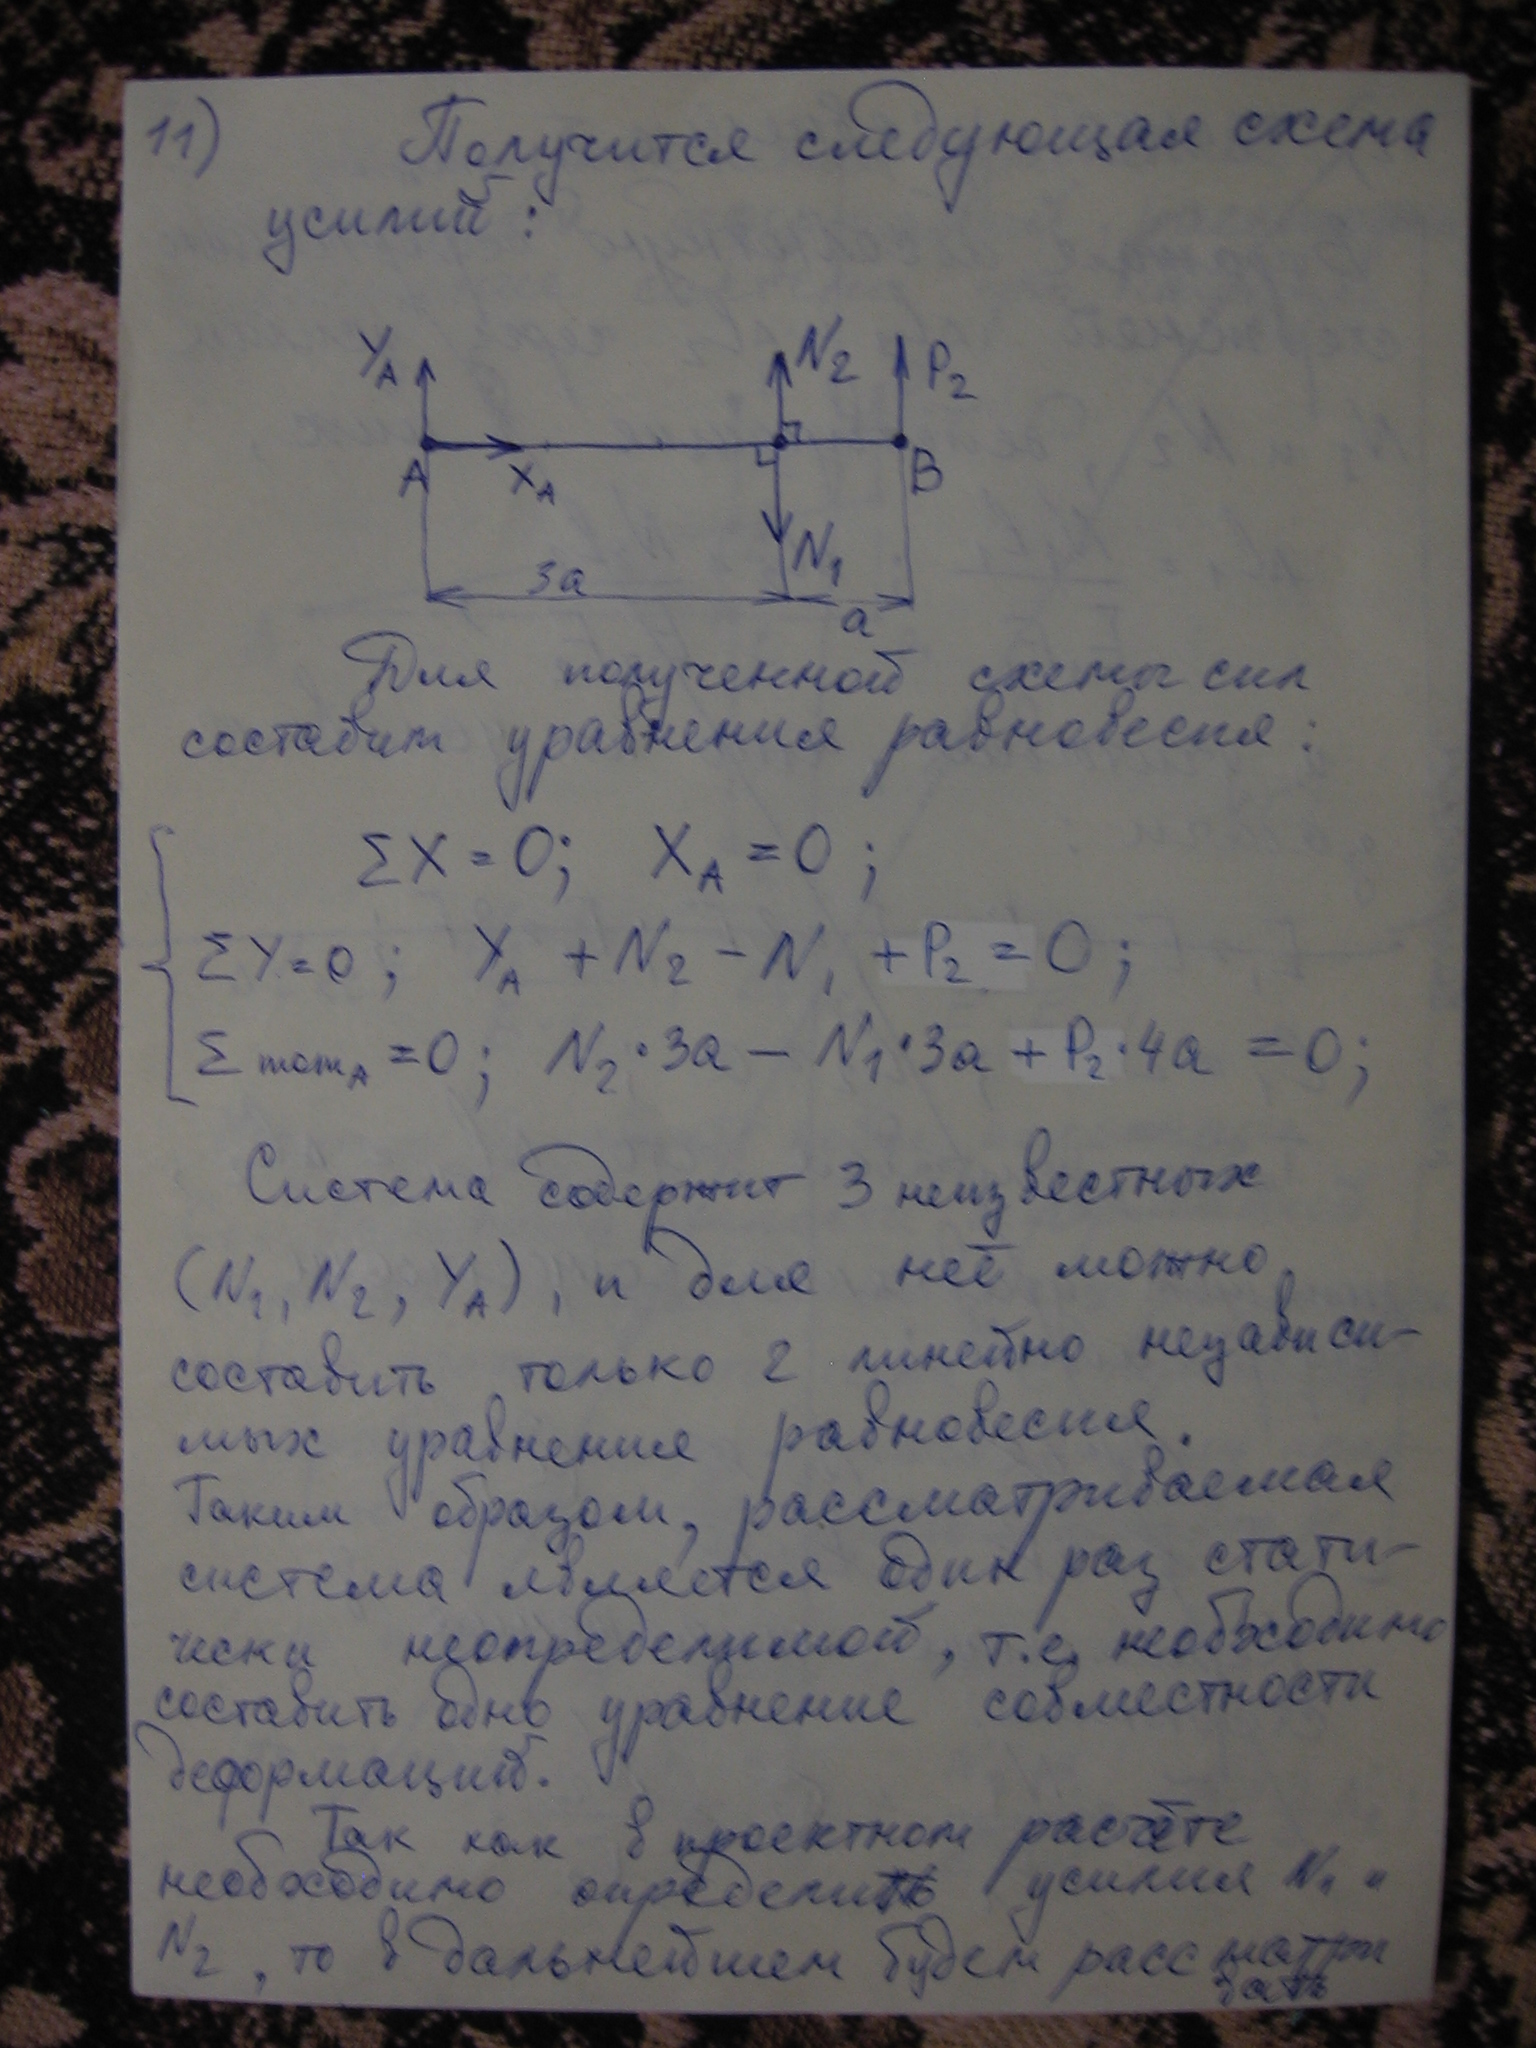 11) Получится следующая схема
усилий:
YA N2 P2
A XA B
N1
3a a
Для полученной схемы сил
составим уравнения равновесия:
ΣX = 0; XA = 0;
ΣY = 0; YA + N2 - N1 + P2 = 0;
Σ momA = 0; N2·3a - N1·3a + P2·4a = 0;
Система содержит 3 неизвестных
(N1, N2, YA), и для неё можно
составить только 2 линейно независи-
мых уравнения равновесия.
Таким образом, рассматриваемая
система является один раз стати-
чески неопределимой, т.е. необходимо
составить одно уравнение совместности
деформаций.
Так как в проектном расчёте
необходимо определить усилия N1 и
N2, то в дальнейшем будем рассматри
вать